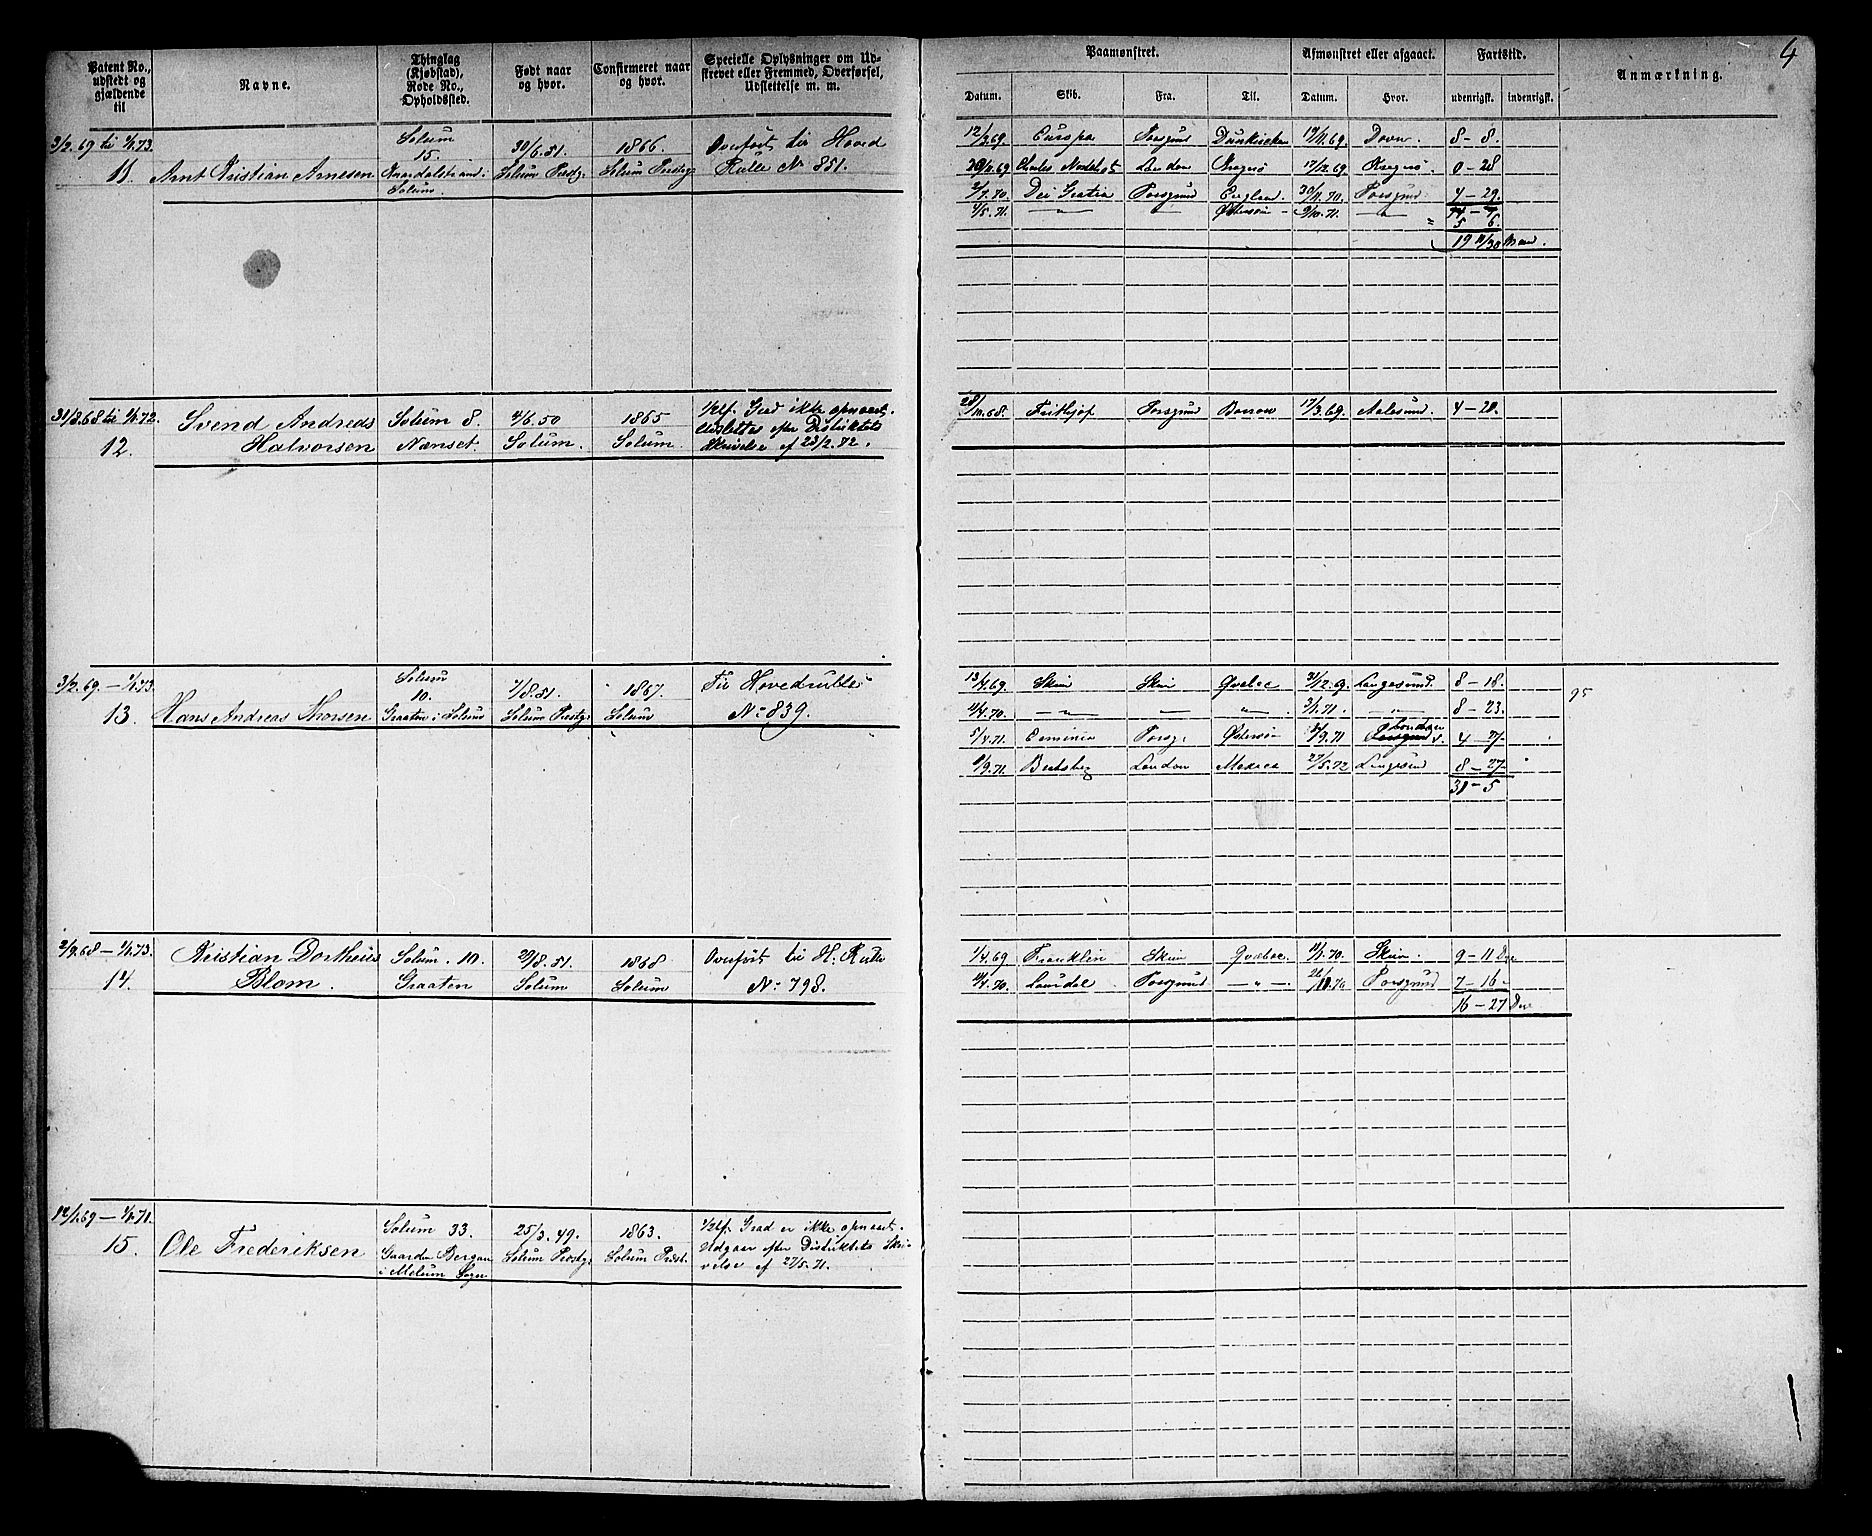 4
Patent No., udstedt og gjældende til
Navne.
Thinglag (Kjøbstad), Rode No., Opholdssted.
Født naar og hvor.
Confirmeret naar og hvor.
Specielle Oplysninger om Udskrevet eller Fremmed, Overførsel, Udslettelse m. m.
Paamønstret.
Afmønstret eller afgaaet.
Fartstid.
Anmærkning.
Datum. Skib. Fra. Til. Datum. Hvor. udenrigsk. indenrigsk.
3/2.69 til 1/1.73.
11. Arnt Kristian Arnesen
Solum
15.
Solum.
30/6.51.
Solum Prestg.
1866.
Solum Prestg.
Overført til Hoved
Rulle No 851.
12/3.69 Europa Porsgrund Dünkirchen 19/11.69. Dover 8-8.
London Kragerø 17/12.69 Kragerø. 0-28
2/7.70. Dei Gratia Porsgrund England. 30/11.70. Porsgrund 4-29.
4/5.71. — " — — " — Østersøen 9/10.71. — " — 5 6.
19 11/30 Maan.
31/8.68 til 1/1.72.
12. Svend Andreas
Halvorsen
Solum 8.
Nanset.
4/6.50
Solum.
1865
Solum
1/2lf. Grad ikke opnaaet.
Udslettes efter Distriktets
Skrivelse af 23/2.72.
28/10.68. Frithjof Porsgrund 17/3.69. Aalesund. 4-20.
3/2.69. — 1/1.73.
13. Hans Andreas Thorsen
Solum
10.
Graaten i Solum
7/8.51.
Solum Prestg.
1867.
Solum
Til Hovedrulle
No 839.
13/4.69. Skien Skien Qvebec 31/12.69. Langesund. 8-18.
95
11/4.70. — " — — " — " 3/1.71. — " — 8-23.
5/4.71. Porsg. Østersøen 9.71 London 4-7-
9.71. London Mexico 27/5.72 Langesund 8-27-
31-5
2/9.68 — 1/1.73.
14. Kristian Dortheus
Blom.
Solum. 10.
Graaten
29/8.51.
Solum
1868
Solum
Overført til H. Rulle
No 798.
1/4.69 Franklin Skien Qvebec 11/1.70. Skien. 9-11 Dge
4.70. Laurdal Porsgrund — " — Porsgrund 7-16-
16-27 Dge
12/1.69 — 1/1.71.
15. Ole Frederiksen
Solum 33.
Gaarden Bergan
i Melum Sogn
25/3.49.
Solum Prestg.
1863.
Solum Prest.
1/2lf. Grad er ikke opnaaet.
Udgaar efter Distriktets Skri-
velse af 27/5.71.